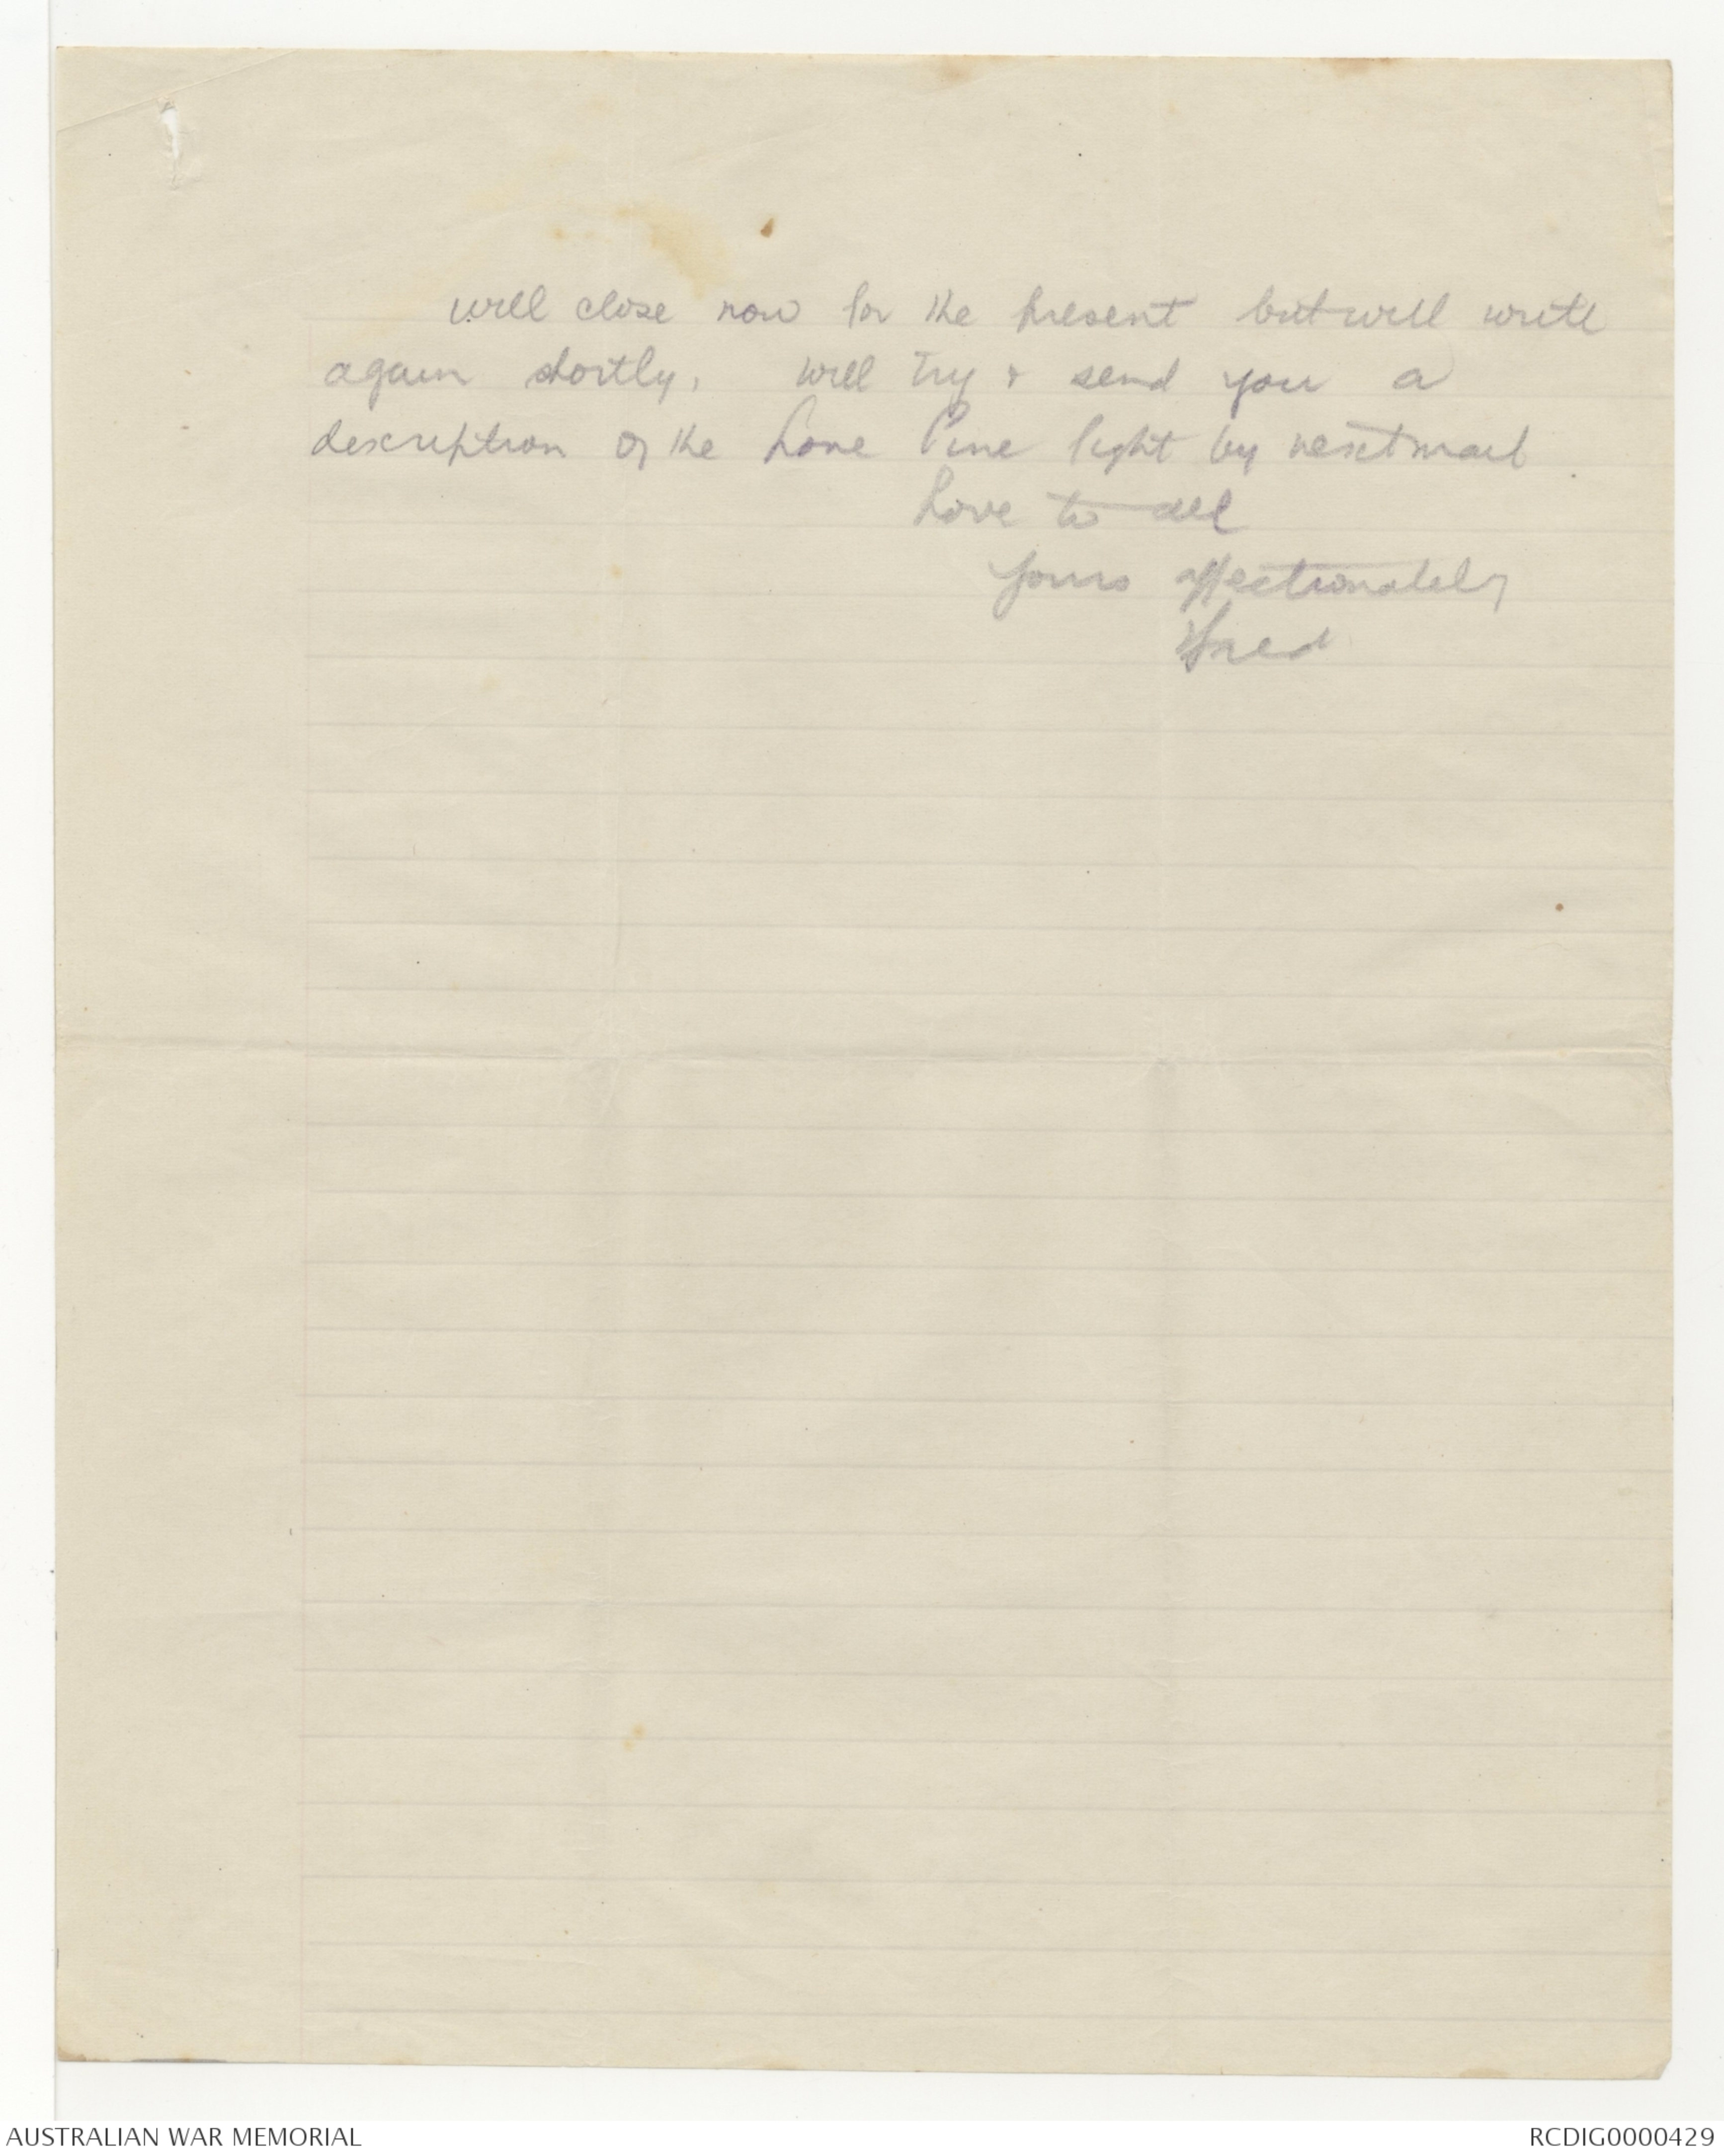 will close now for the present but will write
again shortly, will try & send you a
description of the Lone Pine fight by next mail.
Love to all
Yours affectionately
Fred
AUSTRALIAN WAR MEMORIAL
RCDIG0000429